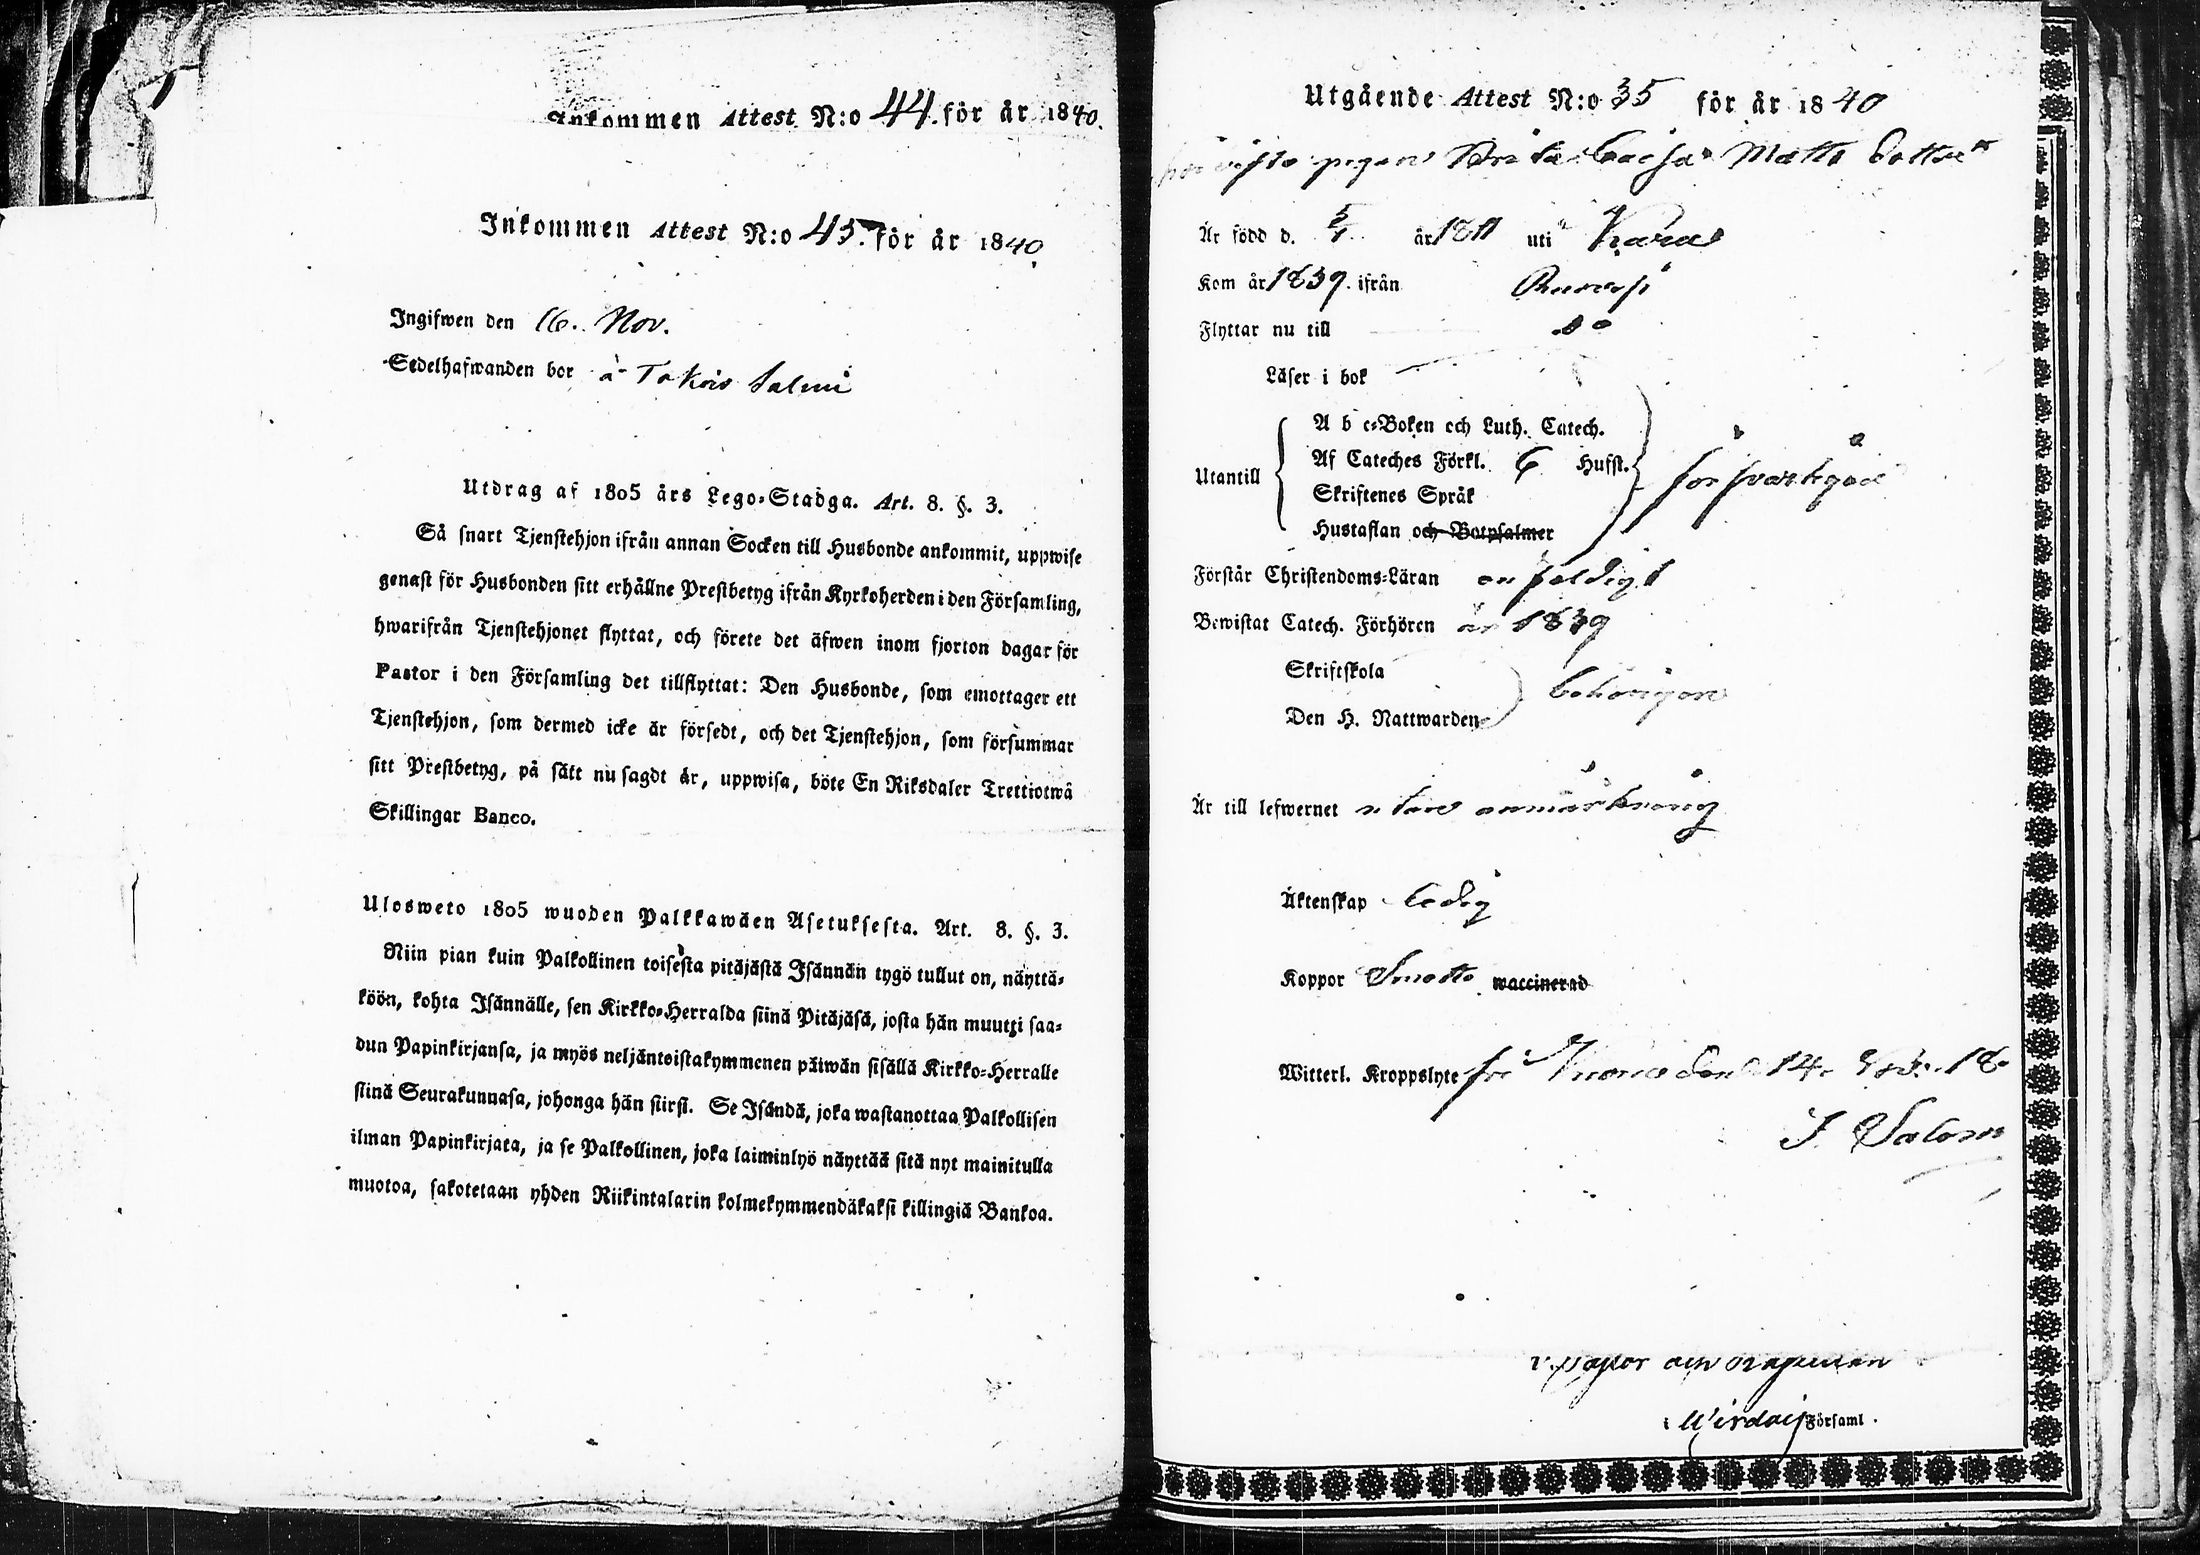 Inkommen Attest N:o 44. för år 1840.
Inkommen Attest N:o 45. för år 1840.
Ingifwen den 16. Nov.
Sedelhafwanden bor å Tokois Salmi
Utdrag af 1805 års Lego-Stadga. Art. 8. §. 3.
Så snart Tjenstehjon ifrån annan Socken till Husbonde ankommit, uppwise
genast för Husbonden sitt erhållne Prestbetyg ifrån Kyrkoherden i den Församling,
hwarifrån Tjenstehjonet flyttat, och förete det äfwen inom fjorton dagar för
Pastor i den Församling det tillflyttat: Den Husbonde, som emottager ett
Tjenstehjon, som dermed icke är försedt, och det Tjenstehjon, som försummar
sitt Prestbetyg, på sätt nu sagdt är, uppwisa, böte En Riksdaler Trettiotwå
Skillingar Banco.
Ulosweto 1805 wuoden Palkkawäen Asetuksesta. Art. 8. §. 3.
Niin pian kuin Palkollinen toisesta pitäjästä Isännän tygö tullut on, näyttä-
köön, kohta Isännälle, sen Kirkko-Herralda siinä Pitäjäsä, josta hän muutti saa-
dun Papinkirjansa, ja myös neljäntoistakymmenen päiwän sisällä Kirkko-Herralle
siinä Seurakunnasa, johonga hän siirsi. Se Isändä, joka wastanottaa Palkollisen
ilman Papinkirjata, ja se Palkollinen, joka laiminlyö näyttää sitä nyt mainitulla
muotoa, sakotetaan yhden Riikintalarin kolmekymmendäkaksi killingiä Bankoa.
Utgående Attest N:o 35 för år 1840
pigan Brita Caisa Matts dotter
Är född d. 5/1 år 1811 uti
Kom år 1839. ifrån Ruovesi
Flyttar nu till do
Läser i bok
A b c-Boken och Luth. Catech.
Utantill Af Cateches Förkl. 6 Hufst. försvarligt
Skriftenes Språk
Hustaflan och Botpsalmer
Förstår Christendoms-Läran enfaldigt
Bewistat Catech. Förhören år 1839
Skriftskola
behörigen
Den H. Nattwarden
Är till lefwernet utan anmärkning
Äktenskap ledig
Koppor Smotto waccinerad
Witterl. Kroppslyte fri den 14
J Salom
v. pastor och Kapellan
i Wirdois Församl.